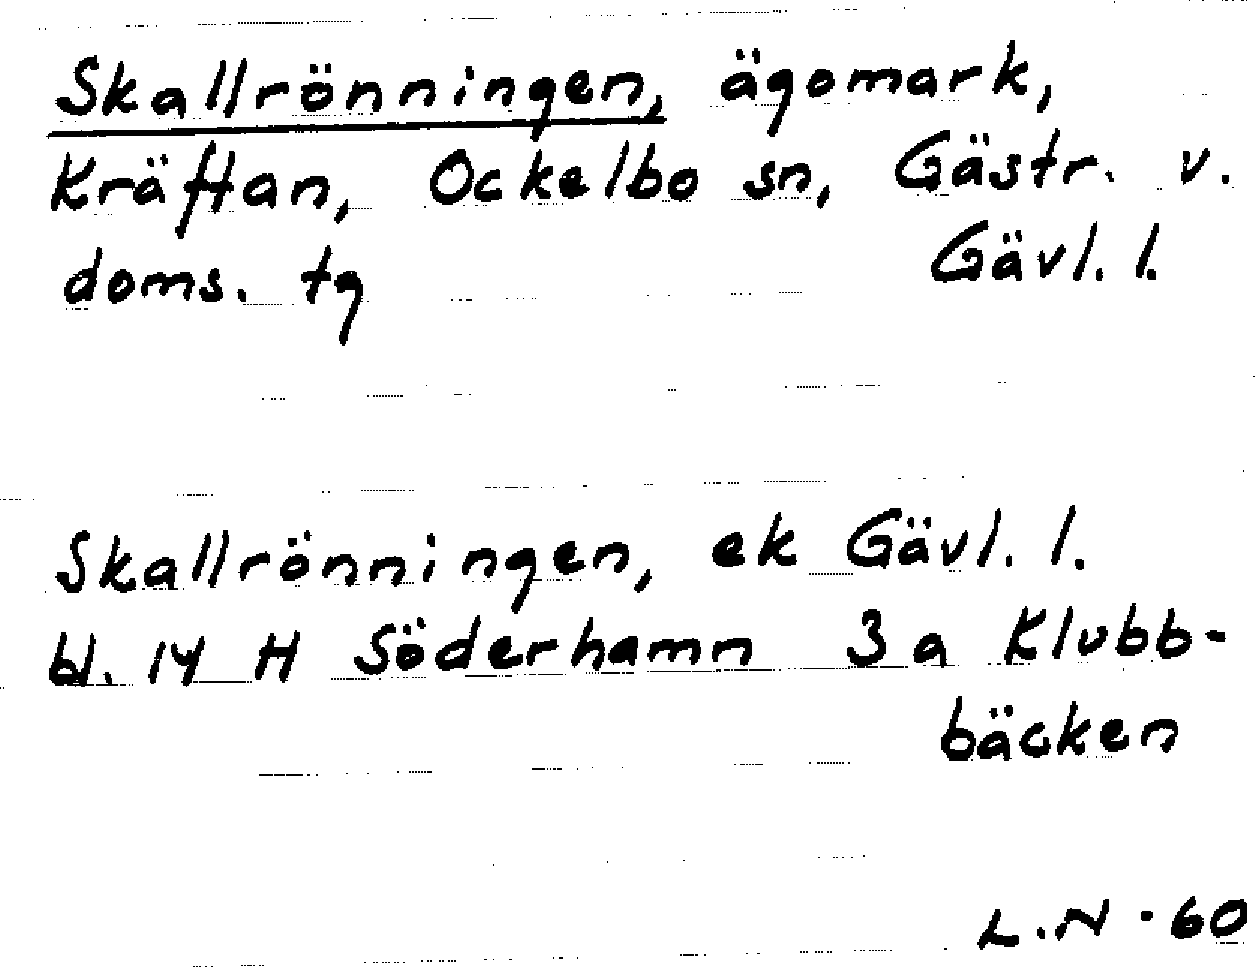 Skallrönningen, ägomark,
Kräftan, Ockelbo sn, Gästr. v.
doms. tg Gävl. l.
Skallrönningen, ek Gävl. l.
bl. 14 H Söderhamn 3 a Klubb-
bäcken
L.N - 60